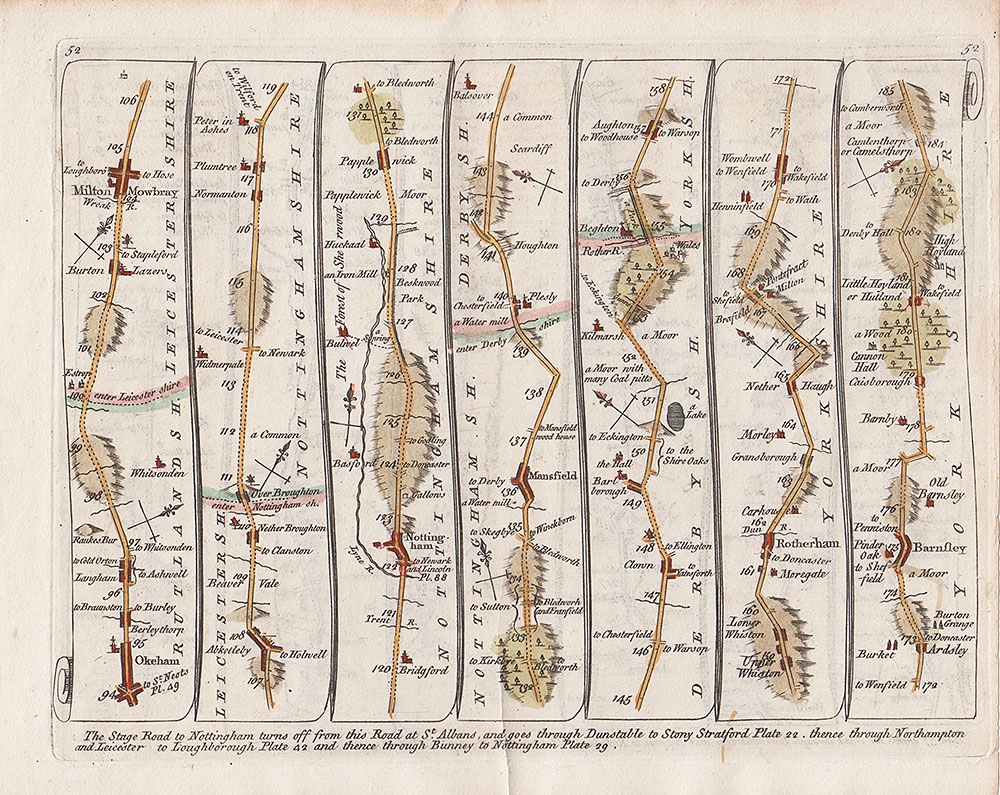 52
52
106
105
to Loughboro
to Hose
Milton
Mowbray
Wreak
R.
104
103
to Stapleford
Burton
Lazers
102
101
100
enter Leicester shire
99
98
Whitsonden
97
to Whitsonden
to Gold Orton
Langham
to Ashwell
96
to Braunston
to Burley
Berleythorp
95
Okeham
94
to St. Neots
Pl. 49
RUTLANDSH.
LEICESTERSHIRE
119
to Wilford
on Trent
Peter in
Ashes
118
Plumtree
117
Normanton
116
115
to Leicester
114
to Newark
Widmerpale
113
112
a Common
111
Over Broughton
enter Nottingham sh.
110
Nether Broughton
to Clanston
109
Beaver
Vale
108
Abketleby
to Holwell
107
LEICESTERSH.
NOTTINGHAMSHIRE
to Bledworth
131
to Bledworth
Papplewick
130
Papplewick
Moor
129
Huckaal
an Iron Mill
128
Beskwood
Park
127
Bulwel
a Spring
The Forest of Sherwood
126
125
to Godling
Basford
124
to Doncaster
Gallows
123
Notting-
ham
122
to Newark
and Lincoln
Pl. 88
Lyne R.
121
Trent R.
120
Bridgford
NOTTINGHAMSHIRE
Balsover
144
a Common
Scardiff
143
142
Houghton
141
140
to Chesterfield
Plesly
a Water mill
enter Derby shire
139
138
137
to Mansfield
wood house
Mansfield
to Derby
136
a Water mill
135
to Skegby
to Winckborn
to Bledworth
134
to Sutton
to Bledworth
and Franfield
133
to Kirkbye
to Bledworth
132
NOTTINGHAMSH.
DERBYSH.
158
Aughton
157
to Woodhouse
to Warson
156
to Derby
a Park
Beghton
155
Rother R.
Wales
154
to Eckington
153
Kilmarsh
a Moor
152
a Moor with
many Coal pitts
151
a
Lake
to Eckington
to the
Shire Oaks
150
the Hall
Barl-
borough
149
148
to Ellington
Clown
to Tatesforth
147
to Chesterfield
146
to Warson
145
DERBYSH.
YORKSH.
172
171
Wombwell
to Wenfield
170
to Wakefield
to Wath
Henninfield
169
168
to Pontefract
Milton
to Shefield
Brafield
167
166
165
Nether
Haugh
Morley
164
Gransborough
163
Carhouse
162
Dun
R.
Rotherham
to Doncaster
161
Moregate
160
Lower
Whiston
159
Upper
Whiston
YORKSHIRE
185
to Cumberworth
a Moor
Camlenthorp
or Camelsthorp
184
183
to Denby Hall
182
High
Hoyland
181
Little Hoyland
or Hutland
to Wakefield
a Wood
180
Cannon
Hall
179
Caisborough
Barnby
178
177
a Moor
Old
Barnsley
176
to
Penniston
Pinder
Oak
175
Barnsley
to Shef-
field
a Moor
174
Burton
Grange
173
to Doncaster
Burket
Ardsley
to Wenfield
172
YORKSHIRE
The Stage Road to Nottingham turns off from this Road at St. Albans, and goes through Dunstable to Stony Stratford Plate 22. thence through Northampton
and Leicester to Loughborough Plate 42 and thence through Bunney to Nottingham Plate 29.